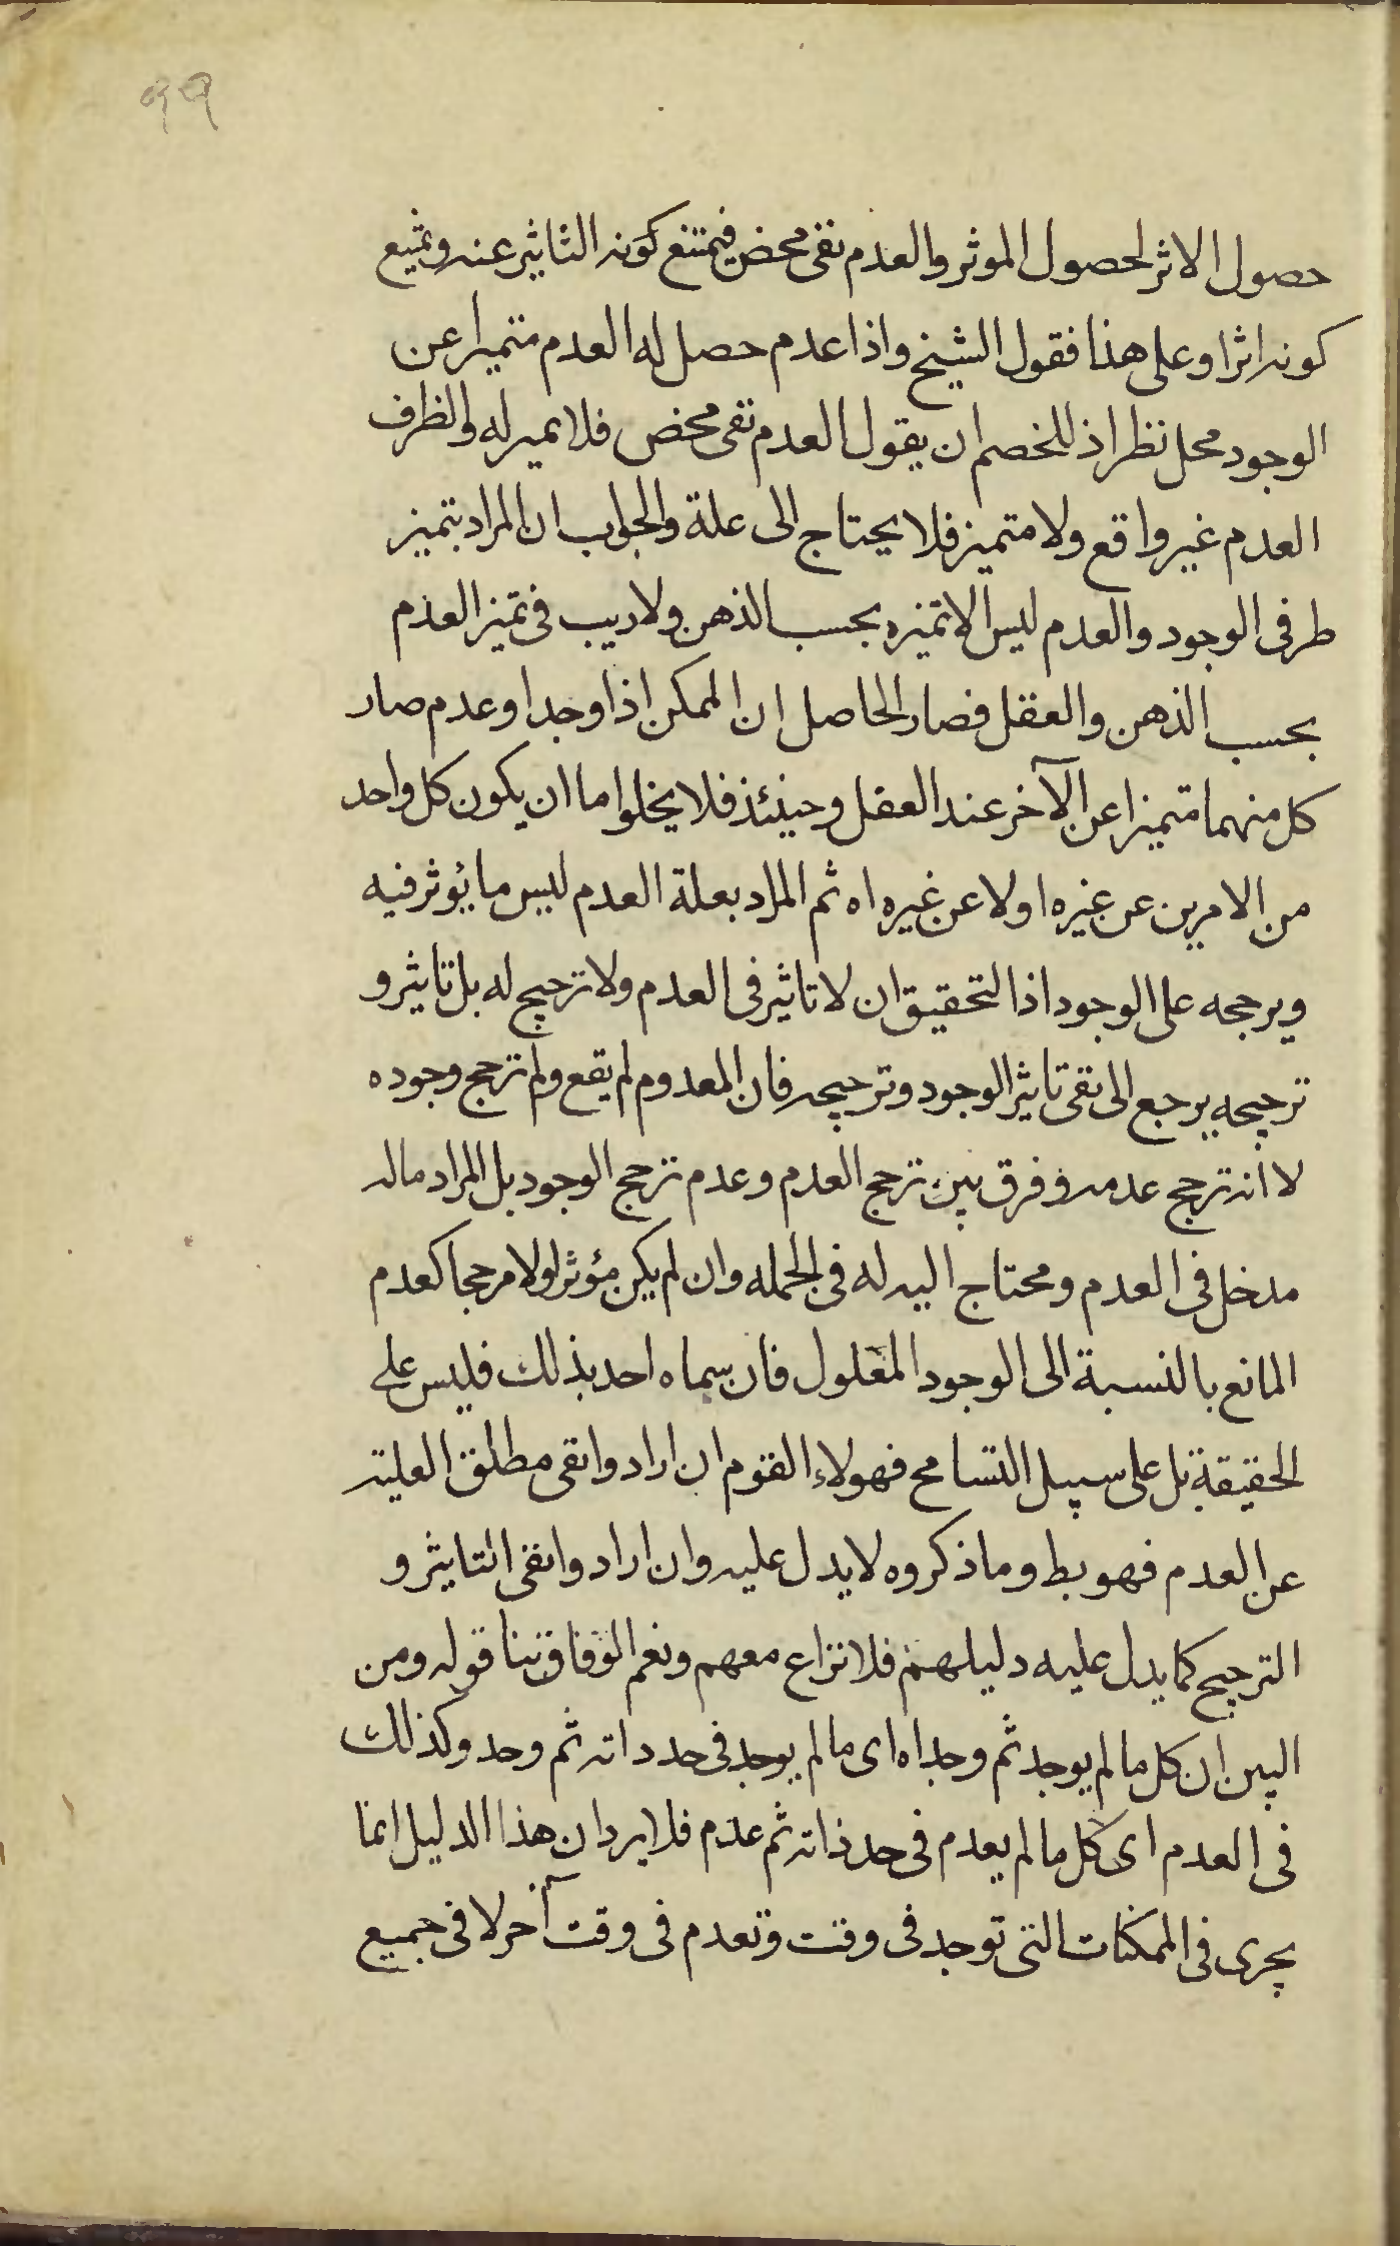 ٩٩
حصول الاثر لحصول الموثر والعدم نفى محض فيمتنع كونه التاثير عنه ويمتنع
كونه اثرا وعلى هذا فقول الشيخ واذا عدم حصل له العدم متميرا عن
الوجود محل نظر اذ للخصم ان يقول العدم نفى محض فلا تمير له والطرف
العدم غير واقع ولا متميز فلا يحتاج الى علة والجواب ان المراد بتميز
طرفى الوجود والعدم ليس الا تميزه بحسب الذهن ولا ريب فى تميز العدم
بحسب الذهن والعقل فصار الحاصل ان الممكن اذا وجد او عدم صار
كل منهما متميزا عن الآخر عند العقل وحينئذ فلا يخلوا ما ان يكون كل واحد
من الامرين عن غيره او لا عن غيره اه ثم المراد بعلة العدم ليس ما يؤثر فيه
ويرجحه على الوجود اذ التحقيق ان لا تاثير فى العدم ولا ترجيح له بل تاثير و
ترجيحه يرجع الى نفى تاثير الوجود وترجيحه فان المعدوم لم يقع ولم ترجح وجوده
لا انه ترجح عدمه وفرق بين ترجح العدم وعدم ترجح الوجود بل المراد ماله
مدخل فى العدم ومحتاج اليه له فى الجمله وان لم يكن مؤثرا ولا مرجحا كعدم
المانع بالنسبة الى الوجود المعلول فان سماه احد بذلك فليس على
الحقيقة بل على سبيل التسامح فهولاء القوم ان ارادوا نفى مطلق العليته
عن العدم فهو بط وما ذكروه لا يدل عليه وان ارادوا نفى التاثير و
الترجيح كما يدل عليه دليلهم فلا نزاع معهم ونعم الوفاق بنا قوله ومن
البين ان كل ما لم يوجد ثم وجد اه اى ما لم يوجد فى حد داته ثم وحد وكذلك
فى العدم اى كل ما لم يعدم فى حد ذاته ثم عدم فلا يرد ان هذا الدليل انما
يجرى فى الممكنات التى توجد فى وقت وتعدم فى وقت آخر لا فى جميع